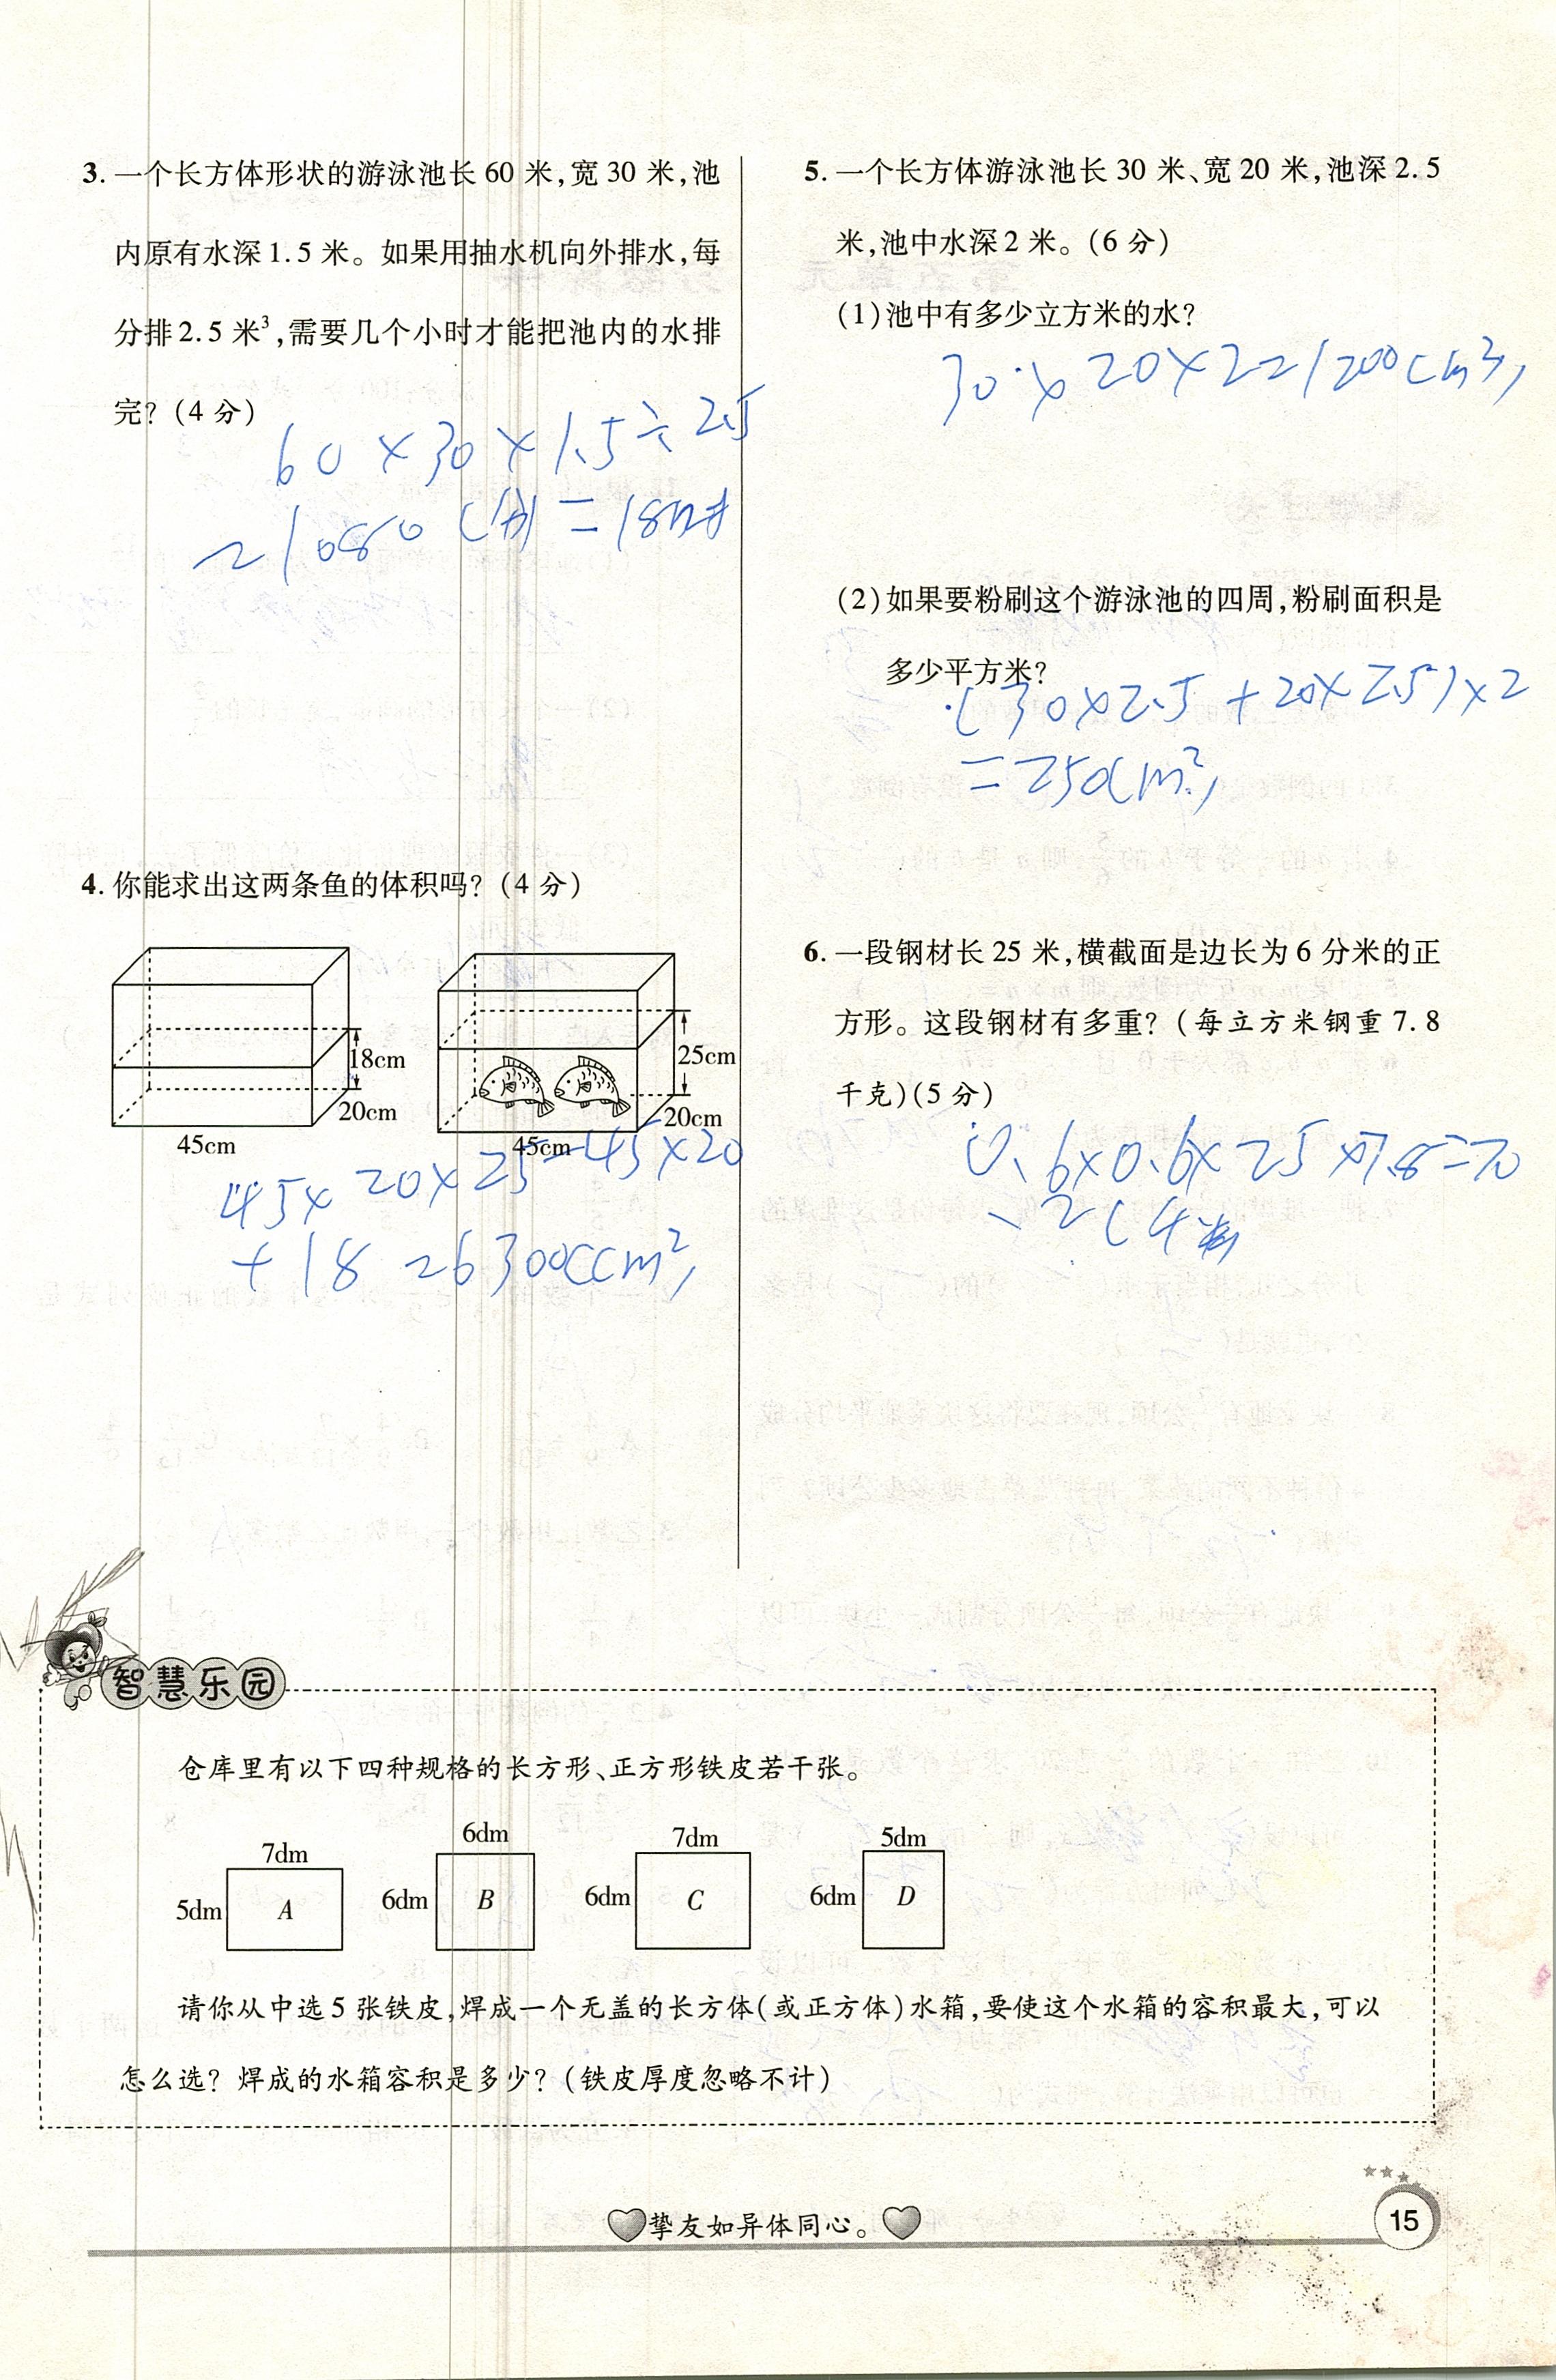 3. 一个长方体形状的游泳池长 60 米,宽 30 米,池
内原有水深 1.5 米。如果用抽水机向外排水,每
分排 2.5 米³,需要几个小时才能把池内的水排
完?(4 分)
60×30×1.5÷2.5
=1080(分)=18时
4. 你能求出这两条鱼的体积吗?(4 分)
18cm
20cm
45cm
25cm
20cm
45cm
45×20×25-45×20
+18=6300(cm²,
5. 一个长方体游泳池长 30 米、宽 20 米,池深 2.5
米,池中水深 2 米。(6 分)
(1)池中有多少立方米的水?
30×20×2=1200(m³,
(2)如果要粉刷这个游泳池的四周,粉刷面积是
多少平方米?
(30×2.5+20×2.5)×2
=250(m²,
6. 一段钢材长 25 米,横截面是边长为 6 分米的正
方形。这段钢材有多重?(每立方米钢重 7.8
千克)(5 分)
0.6×0.6×25×7.8=70
.2(千
智慧乐园
仓库里有以下四种规格的长方形、正方形铁皮若干张。
7dm
5dm
A
6dm
6dm
B
7dm
6dm
C
5dm
6dm
D
请你从中选 5 张铁皮,焊成一个无盖的长方体(或正方体)水箱,要使这个水箱的容积最大,可以
怎么选?焊成的水箱容积是多少?(铁皮厚度忽略不计)
挚友如异体同心。
15